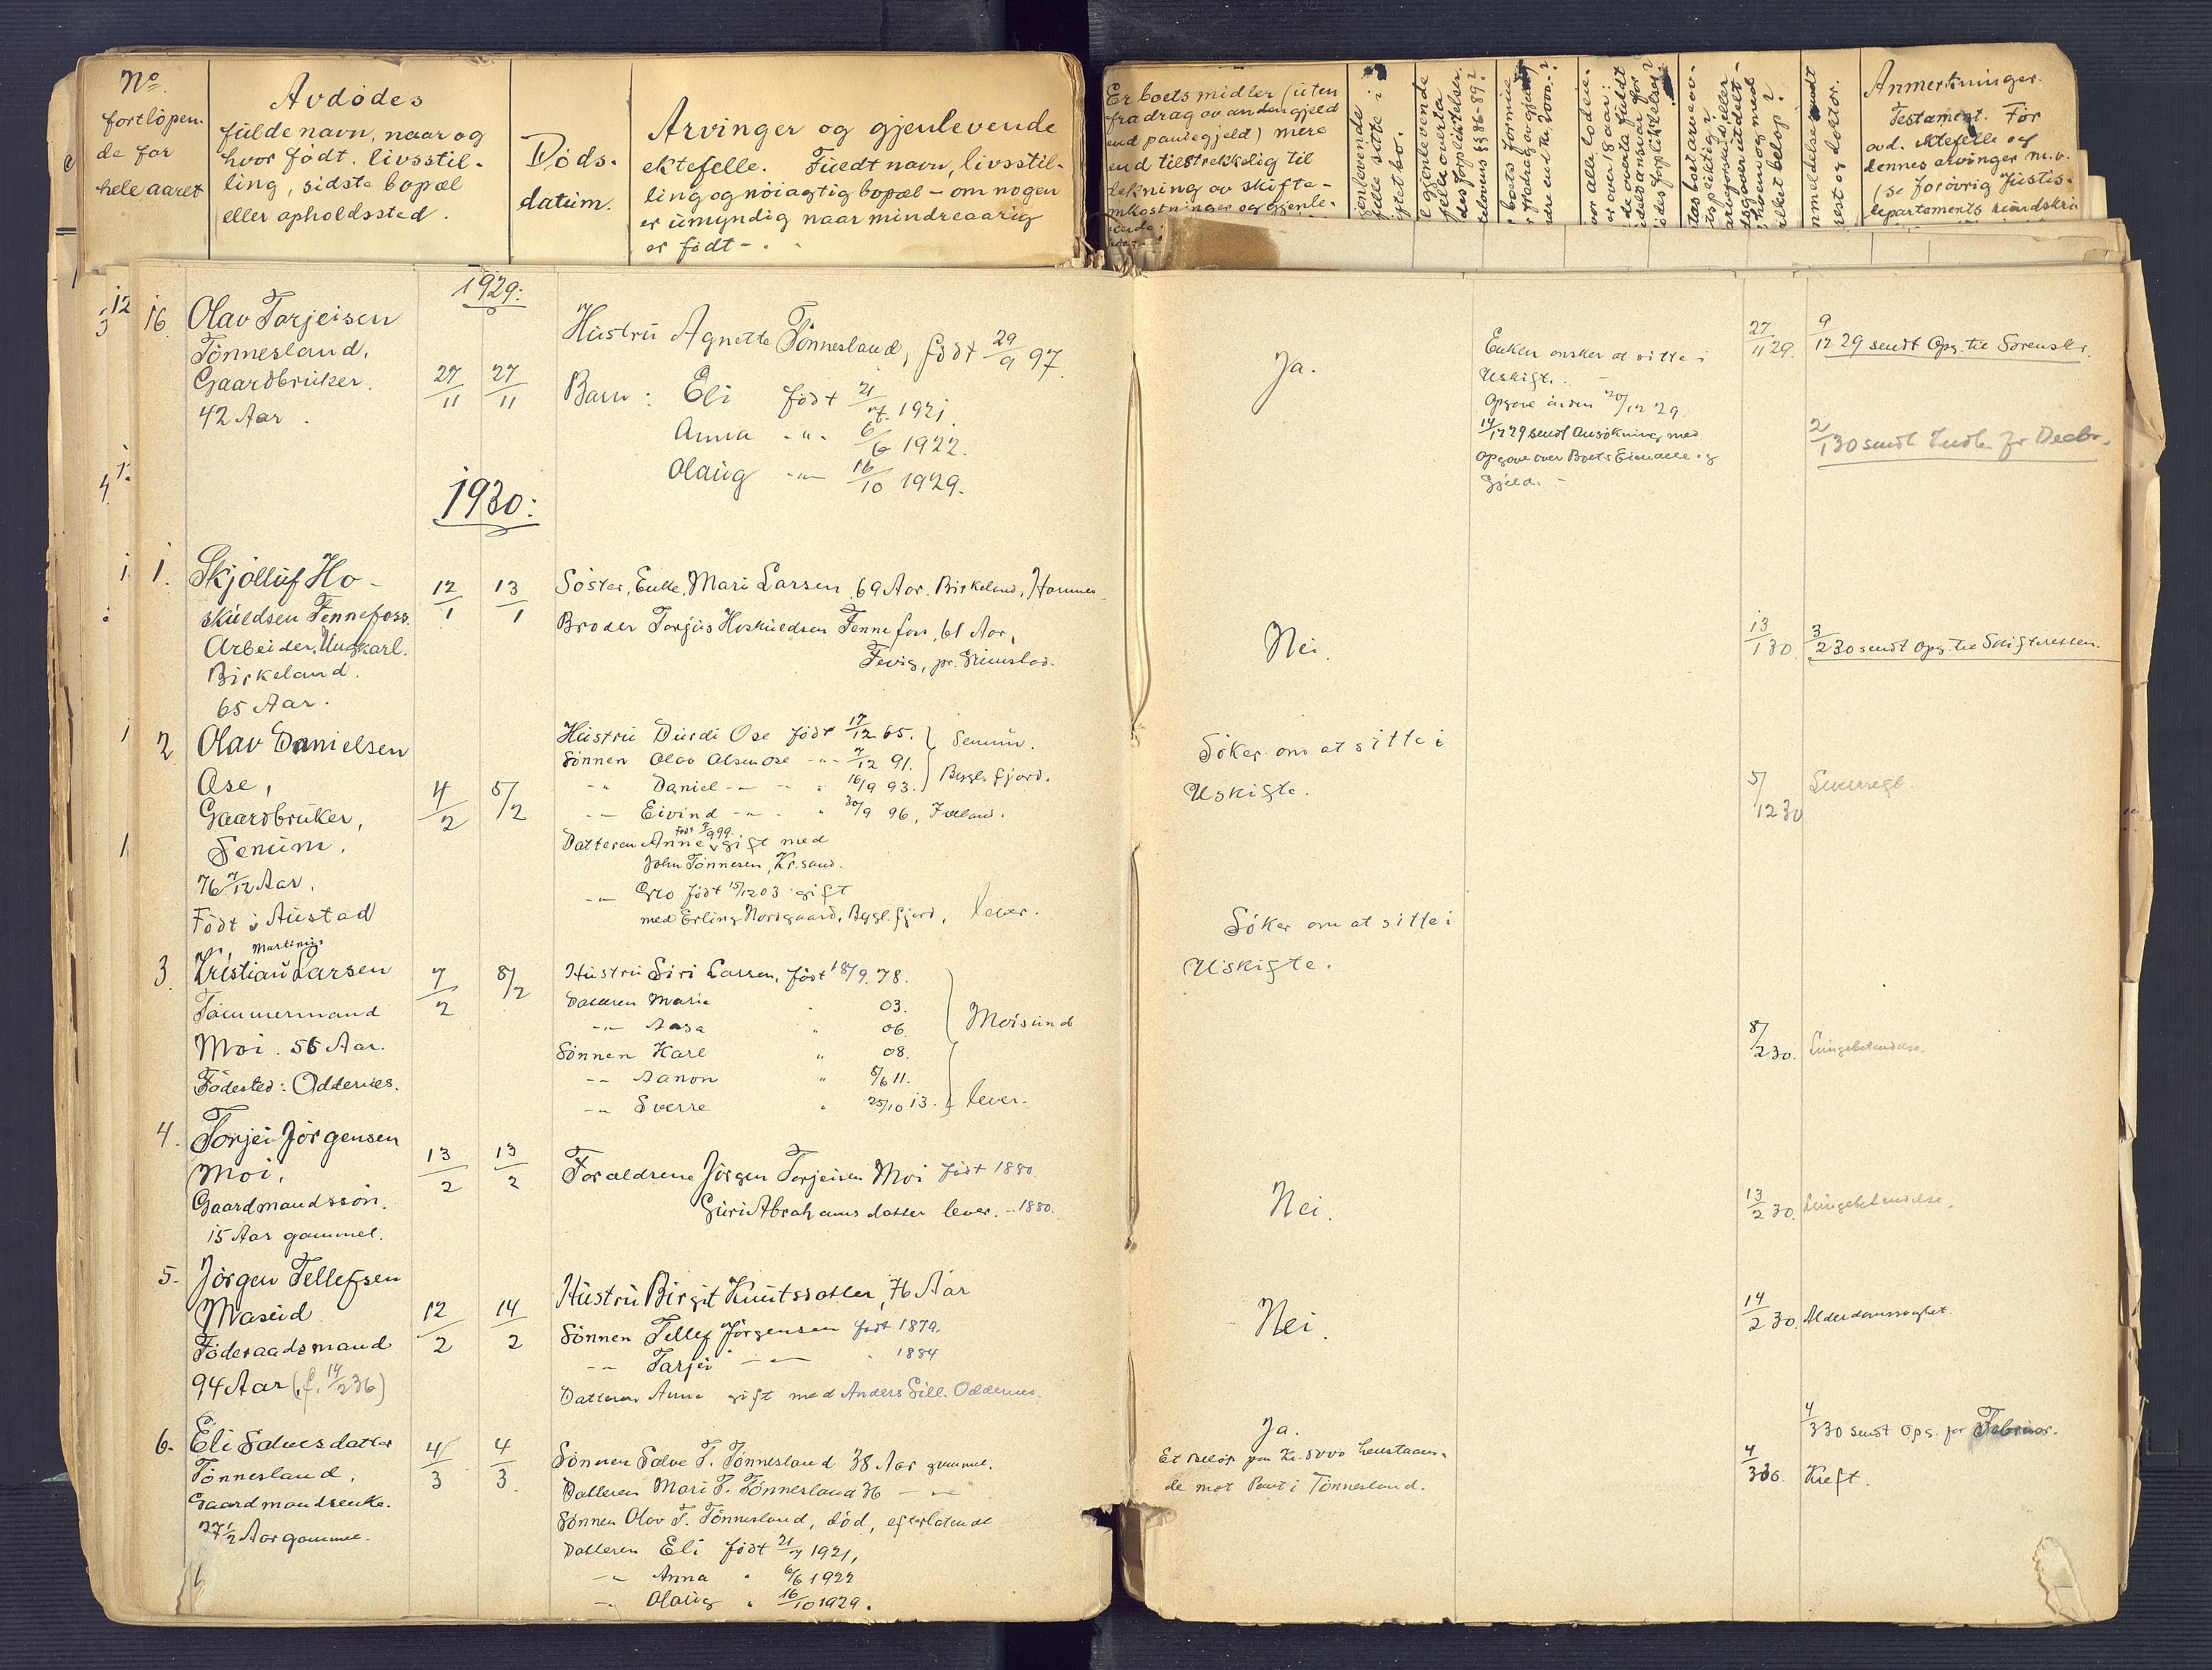 No
fortløpen-
de for
hele aaret
Avdødes
fulde navn, naar og
hvor født. livsstil-
ling, sidste bopæl
eller opholdssted.
Døds-
datum.
Arvinger og gjenlevende
ektefelle. Fuldt navn, livsstil-
ling og nøiagtig bopæl – om nogen
er umyndig naar mindreaarig
er født –
Er boets midler (uten
fradrag av anden gjeld
end pantegjeld) mere
end tilstrekkelig til
dekning av skifte-
omkostninger og gjenle-
Anmerkninger.
Testament. For
avd. ektefelle og
dennes arvinger m.v.
(se forøvrig Justis-
departements rundskri
1929:
16 Olav Torjeisen
Tønnesland,
Gaardbruker.
42 Aar.
27/11 27/11
Hustru Agnette Tønnesland, født 29/9 97.
Barn: Eli født 21/7. 1921.
Anna -"- 6/6 1922.
Olaug -"- 16/10 1929.
Ja.
Enken ønsker at sitte i
Uskift. –
Opgave inden 20/12 29
14/12 29 sendt Ansøkning med
Opgave over Boets Eiendele og
Gjeld. –
27/11 29.
9/12 29 sendt Opg. til Sorenskr.
2/1 30 sendt Indb. for Decbr.
1930:
1. Skjølluf Ho-
skuldsen Fennefoss.
Arbeider, Ungkarl.
Birkeland.
65 Aar.
12/1 13/1
Søster, Enke, Mari Larsen, 69 Aar. Birkeland, Hornnes
Broder Torjus Hoskuldsen Fennefoss, 61 Aar,
Fevig, pr. Grimstad.
Nei.
13/1 30.
3/2 30 sendt Opg. til Skifteretten.
2 Olav Danielsen
Ose,
Gaardbruker,
Senum.
76 7/12 Aar.
Født i Austad
4/2 5/2
Hustru Durdi Ose født 17/12 65. } Senum.
Sønnen Olav Olsen Ose -"- 7/12 91.
-"- Daniel -"- -"- 16/9 93. } Bygl.fjord.
-"- Eivind -"- " 30/9 96, Iveland.
født 7/9 99.
Datteren Anne, gift med
John Tønnesen, Kr.sand.
-"- Gro født 15/12 03 gift
med Erling Nordgaard, Bygl.fjord, lever.
Søker om at sitte i
Uskifte.
5/12 30
3. Kristian Martinius Larsen
Tømmermand
Moi. 56 Aar.
Fødested: Oddernes.
7/2 8/2
Hustru Siri Larsen, født 18/9. 78.
Datteren Marie " 03.
-"- Aasa " 06.
Sønnen Karl " 08.
-"- Aanon " 5/6 11.
-"- Sverre " 25/10 13.
Moisund
lever.
Søker om at sitte i
Uskifte.
8/2 30. Lungebetændelse.
4. Torjei Jørgensen
Moi,
Gaardmandssøn.
15 Aar gammel.
13/2 13/2
Forældrene Jørgen Torjeisen Moi født 1880.
Guri Abrahamsdatter lever. -"- 1880.
Nei.
13/2 30. Lungebetændelse.
5. Jørgen Tellefsen
Maseid.
Føderaadsmand
94 Aar (f. 14/2 36)
12/2 14/2
Hustru Birgit Knutsdatter, 76 Aar
Sønnen Tellef Jørgensen født 1879.
-"- Tarjei -"- " 1884
Datteren Anne gift med Anders Gill. Oddernes.
Nei.
14/2 30. Alderdomssvaghet.
6. Eli Salvesdatter
Tønnesland.
Gaardmandsenke.
77 1/2 Aar gammel.
4/3 4/3.
Sønnen Salve T. Tønnesland 38 Aar gammel.
Datteren Mari T. Tønnesland 36 -"-
Sønnen Olav T. Tønnesland, død, efterlatende
Datteren Eli født 21/7 1921,
-"- Anna " 6/6 1922
-"- Olaug " 16/10 1929.
Ja.
Et Beløp paa Kr. 5000 henstaaen-
de mot Pant i Tønnesland.
4/3 30 sendt Opg. for Februar.
4/3 30. Kreft.